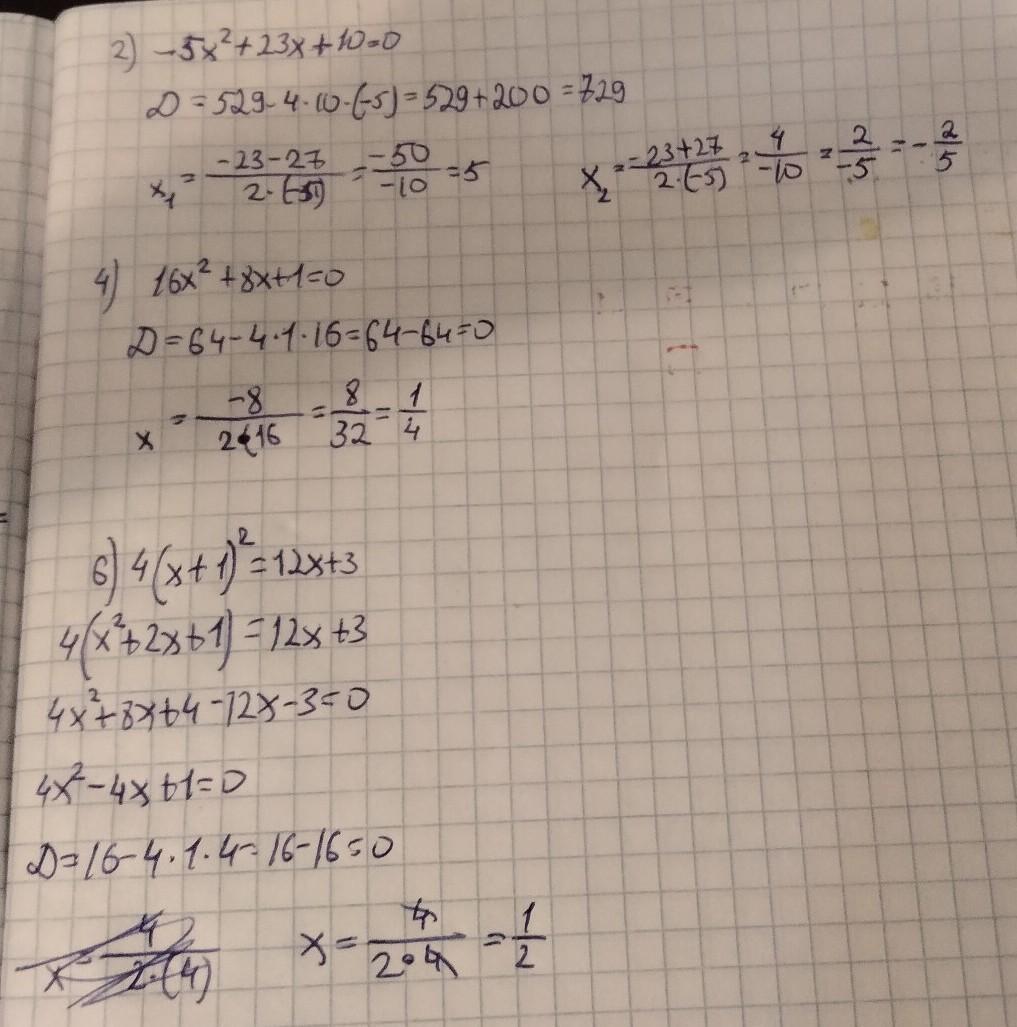 2) -5x²+23x+10=0
D = 529-4·10·(-5)=529+200=729
x₁ = \frac{-23-27}{2·(-5)} = \frac{-50}{-10} = 5 x₂ = \frac{-23+27}{2·(-5)} = \frac{4}{-10} = \frac{2}{-5} = -\frac{2}{5}
4) 16x²+8x+1=0
D=64-4·1·16=64-64=0
x = \frac{-8}{2·16} = \frac{8}{32} = \frac{1}{4}
6) 4(x+1)²=12x+3
4(x²+2x+1)=12x+3
4x²+8x+4-12x-3=0
4x²-4x+1=0
D=16-4·1·4=16-16=0
x = \frac{4}{2·(4)} x = \frac{4}{2·4} = \frac{1}{2}